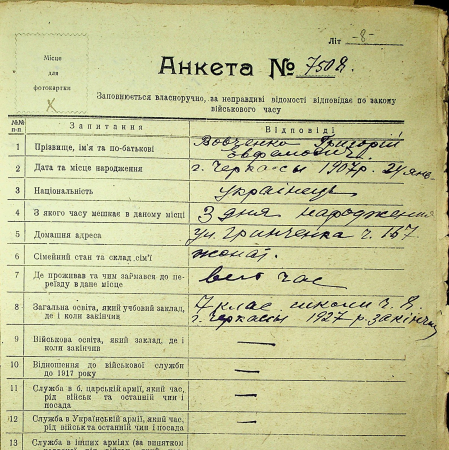 Літ -8-
Місце
для
фотокартки
Анкета № 750
Заповнюється власноручно, за неправдиві відомості відповідає по закому
військового часу
№№
п-п.
Запитання
Відповіді
1 Прізвище, ім'я та по-батькові Вовченко Григорій
2 Дата та місце народження г. Черкассы 1907 р. 24 янв.
3 Національність українець
4 З якого часу мешкає в даному місці З дня народження
5 Домашня адреса ул. Гринченка ч. 167
6 Сімейний стан та склад сім'ї жонат.
7 Де проживав та чим займався до пе-
реїзду в дане місце весь час
8 Загальна освіта, який учбовий заклад,
де і коли закінчив 7 клас. школи ч. 2
г. Черкассы 1927 р.
9 Військова освіта, який заклад, де і
коли закінчив —
10 Відношення до військової служби
до 1917 року —
11 Служба в б. царській армії, який час,
рід військ та останній чин і
посада —
12 Служба в Українській армії, який час,
рід військ та останній чин і посада —
13 Служба в інших арміях (ва винятком